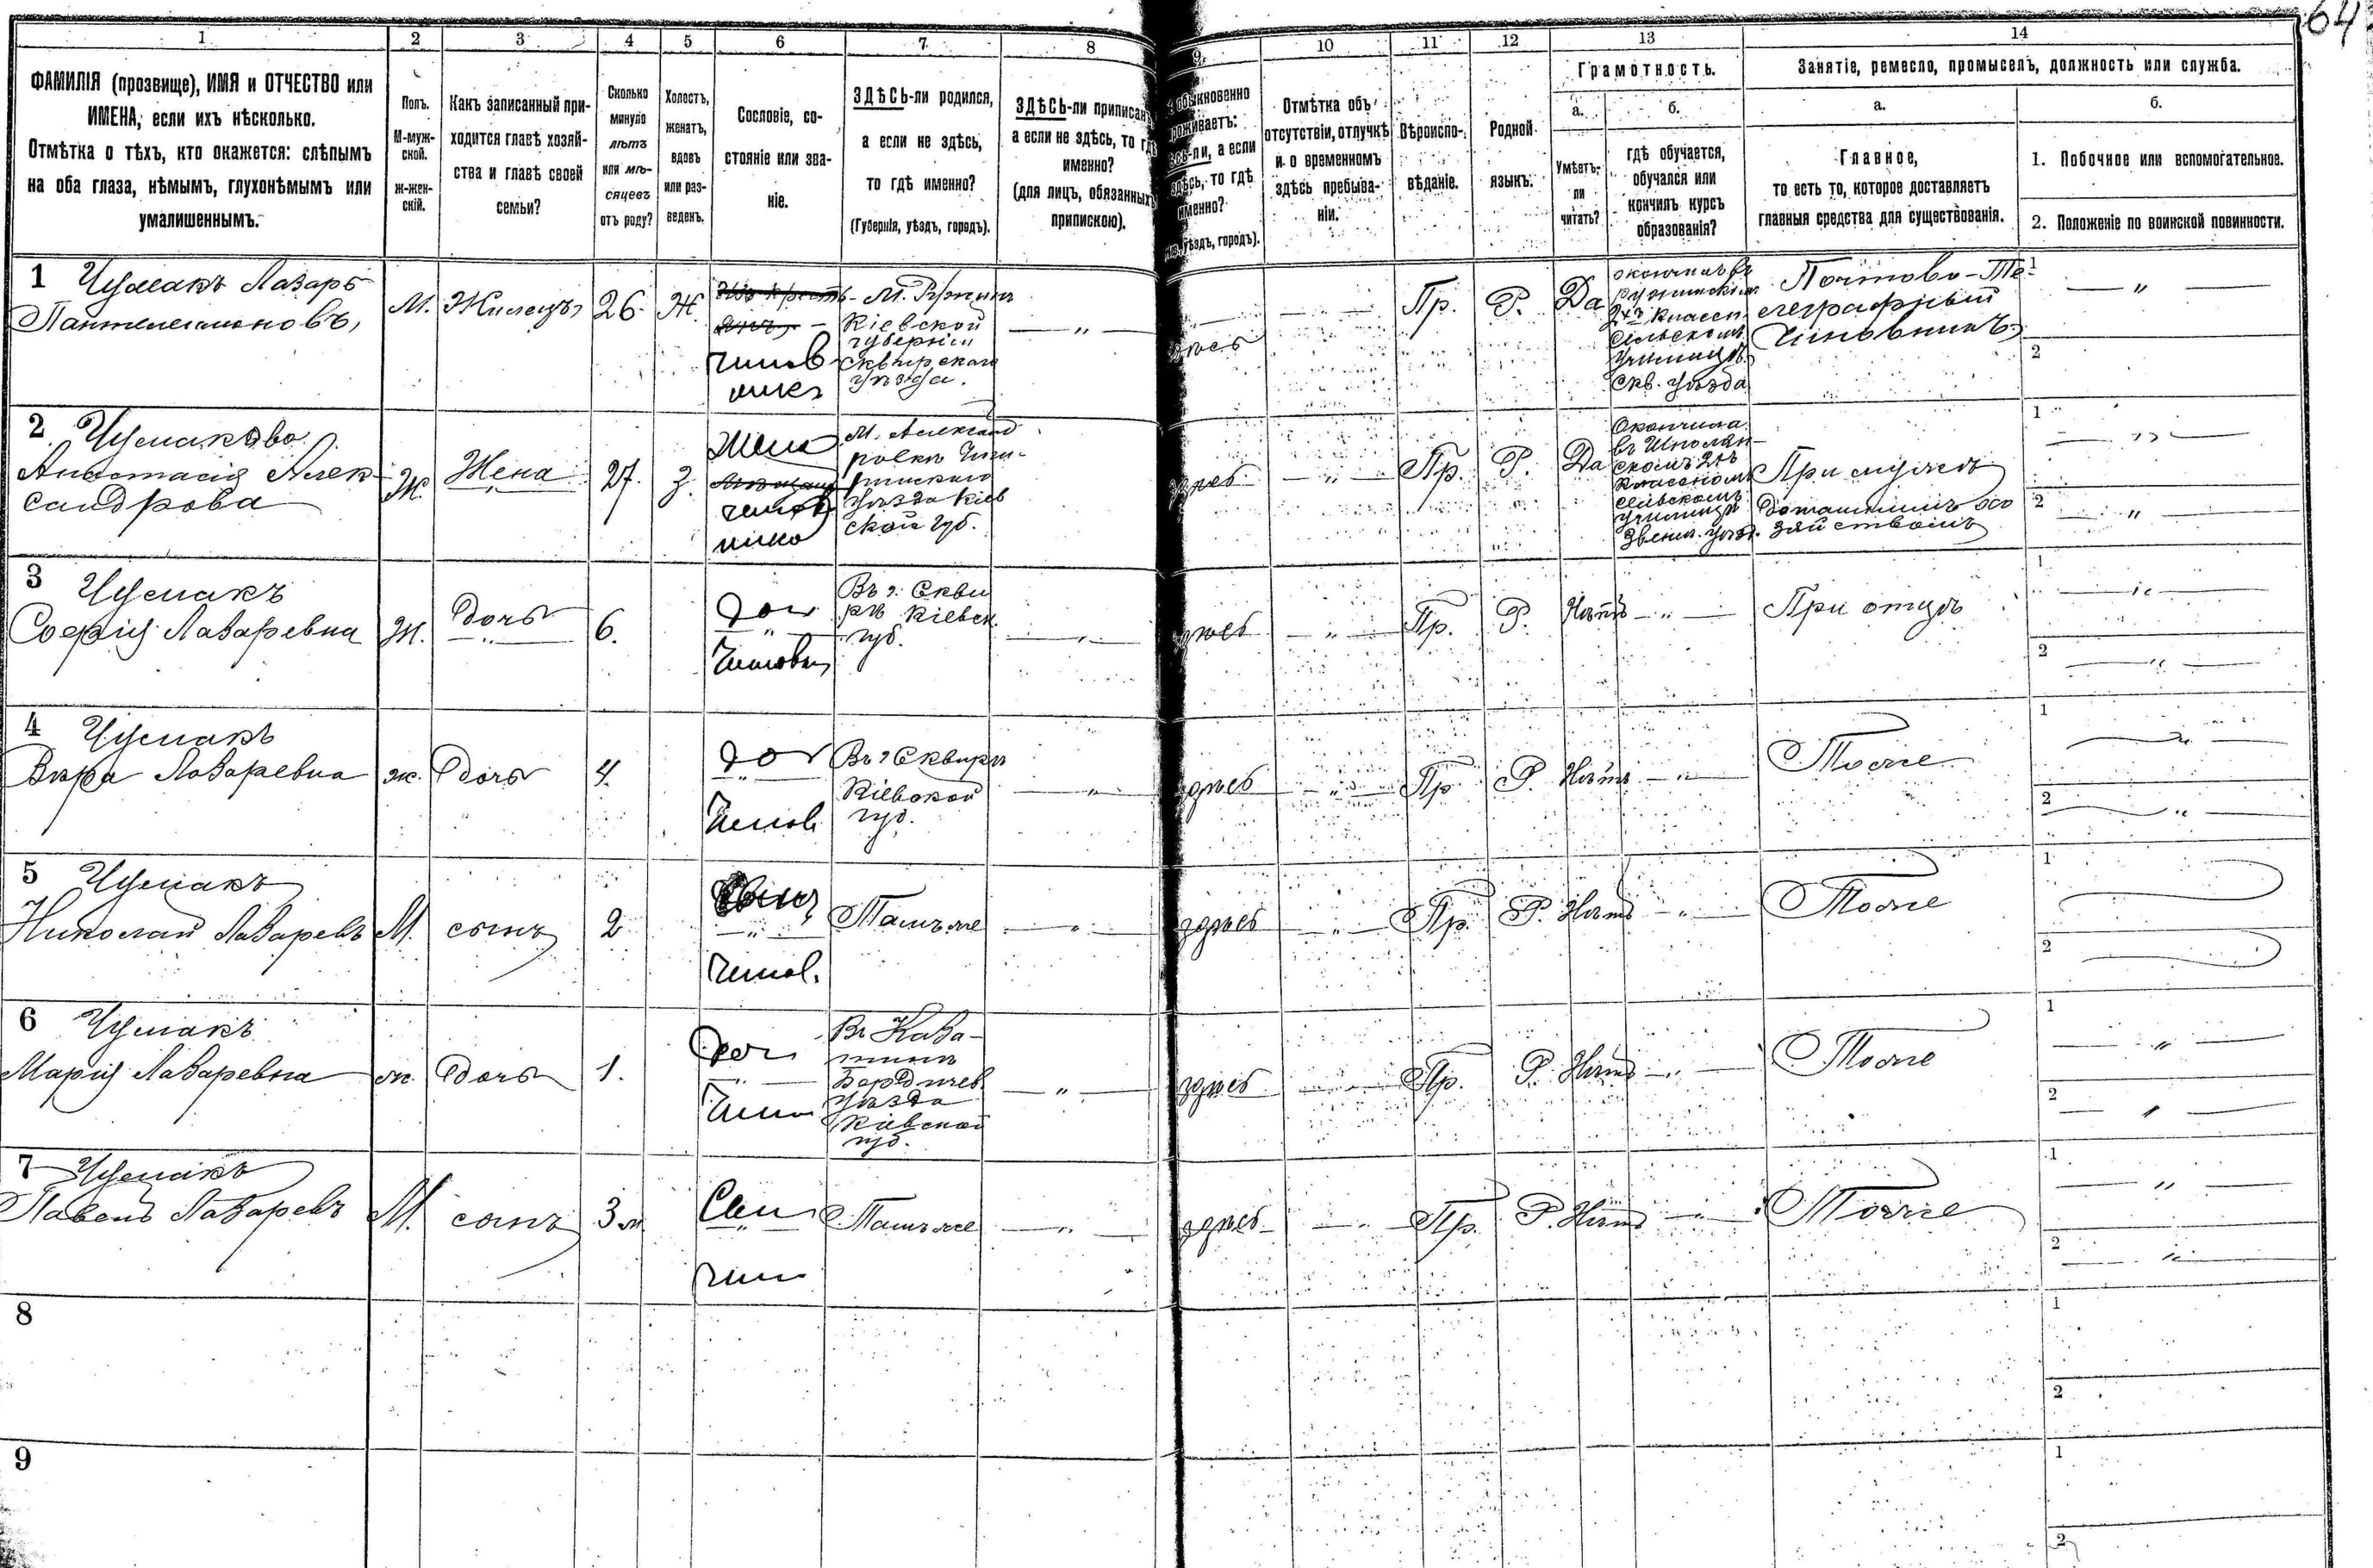 64
1 2 3 4 5 6 7 8 9 10 11 12 13 14
ФАМИЛІЯ (прозвище), ИМЯ и ОТЧЕСТВО или
ИМЕНА, если ихъ нѣсколько.
Отмѣтка о тѣхъ, кто окажется: слѣпымъ
на оба глаза, нѣмымъ, глухонѣмымъ или
умалишеннымъ.
Полъ.
М-муж-
ской.
ж-жен-
скій.
Какъ записанный при-
ходится главѣ хозяй-
ства и главѣ своей
семьи?
Сколько
минуло
лѣтъ
или мѣ-
сяцевъ
отъ роду?
Холостъ,
женатъ,
вдовъ
или раз-
веденъ.
Сословіе, со-
стояніе или зва-
ніе.
ЗДѢСЬ-ли родился,
а если не здѣсь,
то гдѣ именно?
(Губернія, уѣздъ, городъ).
ЗДѢСЬ-ли приписанъ
а если не здѣсь, то гдѣ
именно?
(для лицъ, обязанныхъ
припискою).
обыкновенно
проживаетъ:
здѣсь-ли, а если
здѣсь, то гдѣ
именно?
уѣздъ, городъ).
Отмѣтка объ
отсутствіи, отлучкѣ
и о временномъ
здѣсь пребыва-
ніи.
Вѣроиспо-
вѣданіе.
Родной
языкъ.
Грамотность.
а.
Умѣетъ-
ли
читать?
б.
гдѣ обучается,
обучался или
кончилъ курсъ
образованія?
Занятіе, ремесло, промыселъ, должность или служба.
а.
Главное,
то есть то, которое доставляетъ
главныя средства для существованія.
б.
1. Побочное или вспомогательное.
2. Положеніе по воинской повинности.
1 Чумакъ Лазарь
Пантелеимоновъ,
М.
Жилецъ
26
Ж.
чинов
никъ
М. Ружинъ
Кіевской
губерніи
Сквирскаго
уѣзда.
здѣсь
Пр.
Р.
Да
окончилъ въ
Ружинскомъ
2хъ классн.
сельскомъ
училищѣ
Скв. уѣзда
Почтово-Те-
леграфный
Чиновникъ
1
2
2 Чумакова
Анастасія Алек-
сандрова
Ж.
Жена
27.
З.
Жена
чинов
ника
М. Александ
ровкѣ Чиги-
ринскаго
уѣзда Кіев
ской губ.
здѣсь
Пр.
Р.
Да
Окончила
въ Шполян-
скомъ 2хъ
классномъ
сельскомъ
училищѣ
Звениг. уѣзд.
При мужѣ
домашнимъ хо
зяйствомъ
1
2
3 Чумакъ
Софія Лазаревна
Ж.
Дочь
6.
доч
Чиновн
Въ г. Скви
рѣ Кіевск.
губ.
здѣсь
Пр.
Р.
Нѣтъ
При отцѣ
1
2
4 Чумакъ
Вѣра Лазаревна
ж.
Дочь
4.
доч
Чинов
Въ г Сквирѣ
Кіевской
губ.
здѣсь
Пр
Р.
Нѣтъ
Тоже
1
2
5 Чумакъ
Николай Лазаревъ
М.
сынъ
2
Сынъ
Чинов.
Тамъ же
здѣсь
Пр.
Р.
Нѣтъ
Тоже
1
2
6 Чумакъ
Марія Лазаревна
ж.
Дочь
1.
доч
Чин
Въ Каза-
тинѣ
Бердичев
уѣзда
Кіевской
губ.
здѣсь
Пр.
Р.
Нѣтъ
Тоже
1
2
7 Чумакъ
Павелъ Лазаревъ
М.
сынъ
3 м
Сын
чин
Тамъ же
здѣсь
Пр.
Р.
Нѣтъ
Тоже
1
2
8
1
2
9
1
2